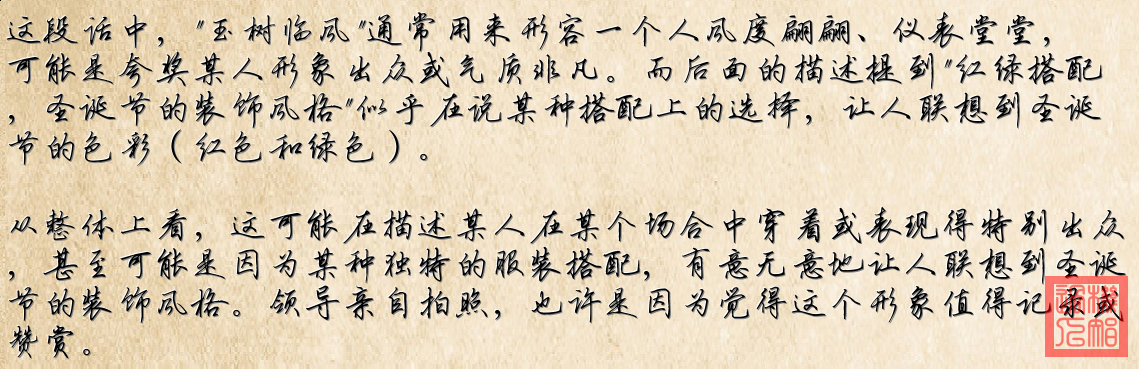 这段话中，"玉树临风"通常用来形容一个人风度翩翩、仪表堂堂，
可能是夸奖某人形象出众或气质非凡。而后面的描述提到"红绿搭配
，圣诞节的装饰风格"似乎在说某种搭配上的选择，让人联想到圣诞
节的色彩（红色和绿色）。
从整体上看，这可能在描述某人在某个场合中穿着或表现得特别出众
，甚至可能是因为某种独特的服装搭配，有意无意地让人联想到圣诞
节的装饰风格。领导亲自拍照，也许是因为觉得这个形象值得记录或
赞赏。